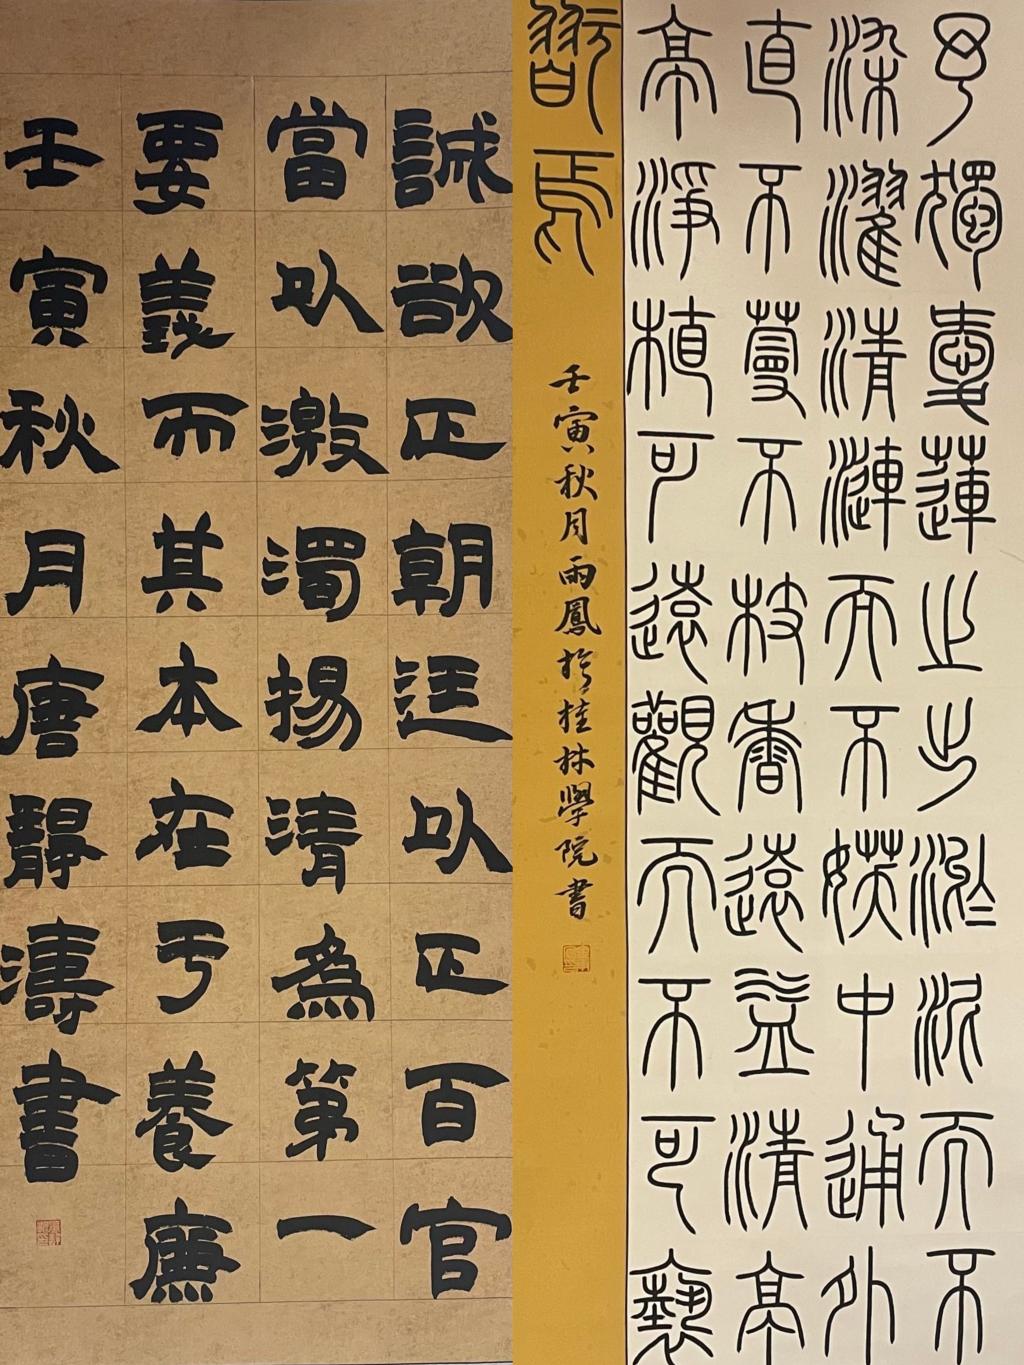 予獨愛蓮之出淤泥而不
染濯清漣而不妖中通外
直不蔓不枝香遠益清亭
亭淨植可遠觀而不可褻
翫焉
壬寅秋月雨鳳於桂林學院書
誠欲正朝廷以正百官
當以激濁揚清為第一
要義而其本在亏養廉
壬寅秋月唐靜濤書